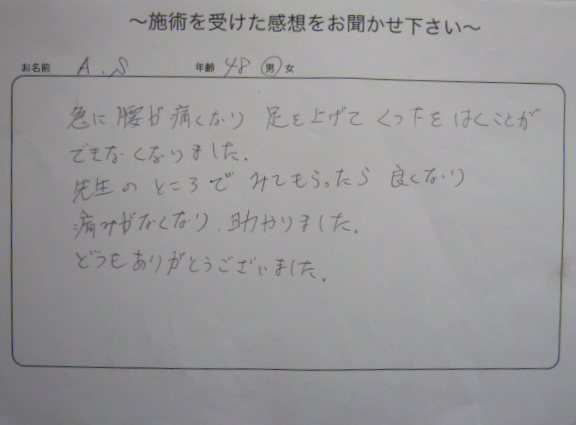 ～施術を受けた感想をお聞かせ下さい～
お名前 A.S 年齢 48 男 女
急に腰が痛くなり 足を上げて くつたをはくことが
できなくなりました.
先生のところで みてもらったら 良くなり
痛みがなくなり、助かりました.
どうもありがとうございました.